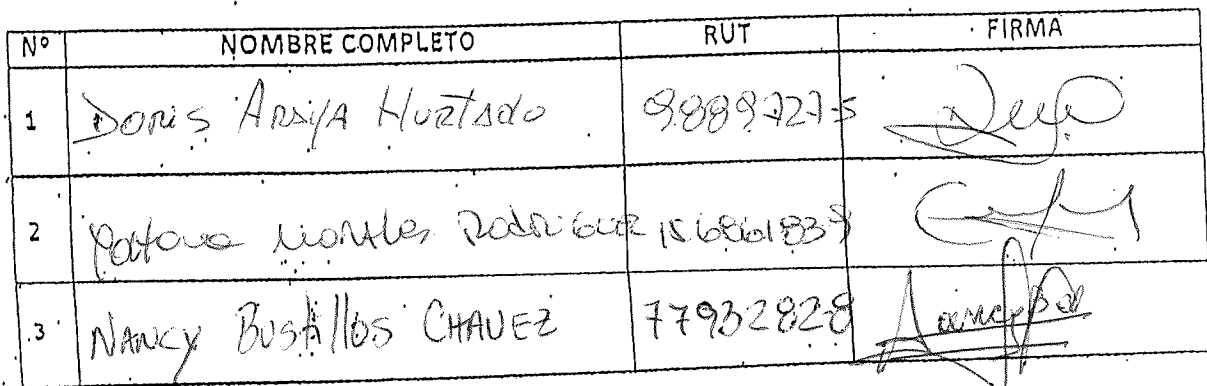 Nº NOMBRE COMPLETO RUT FIRMA
1 Doris Araya Hurtado 9.889.727-5
2 Morales Rodriguez
3 NANCY Bustillos CHAVEZ 77932828